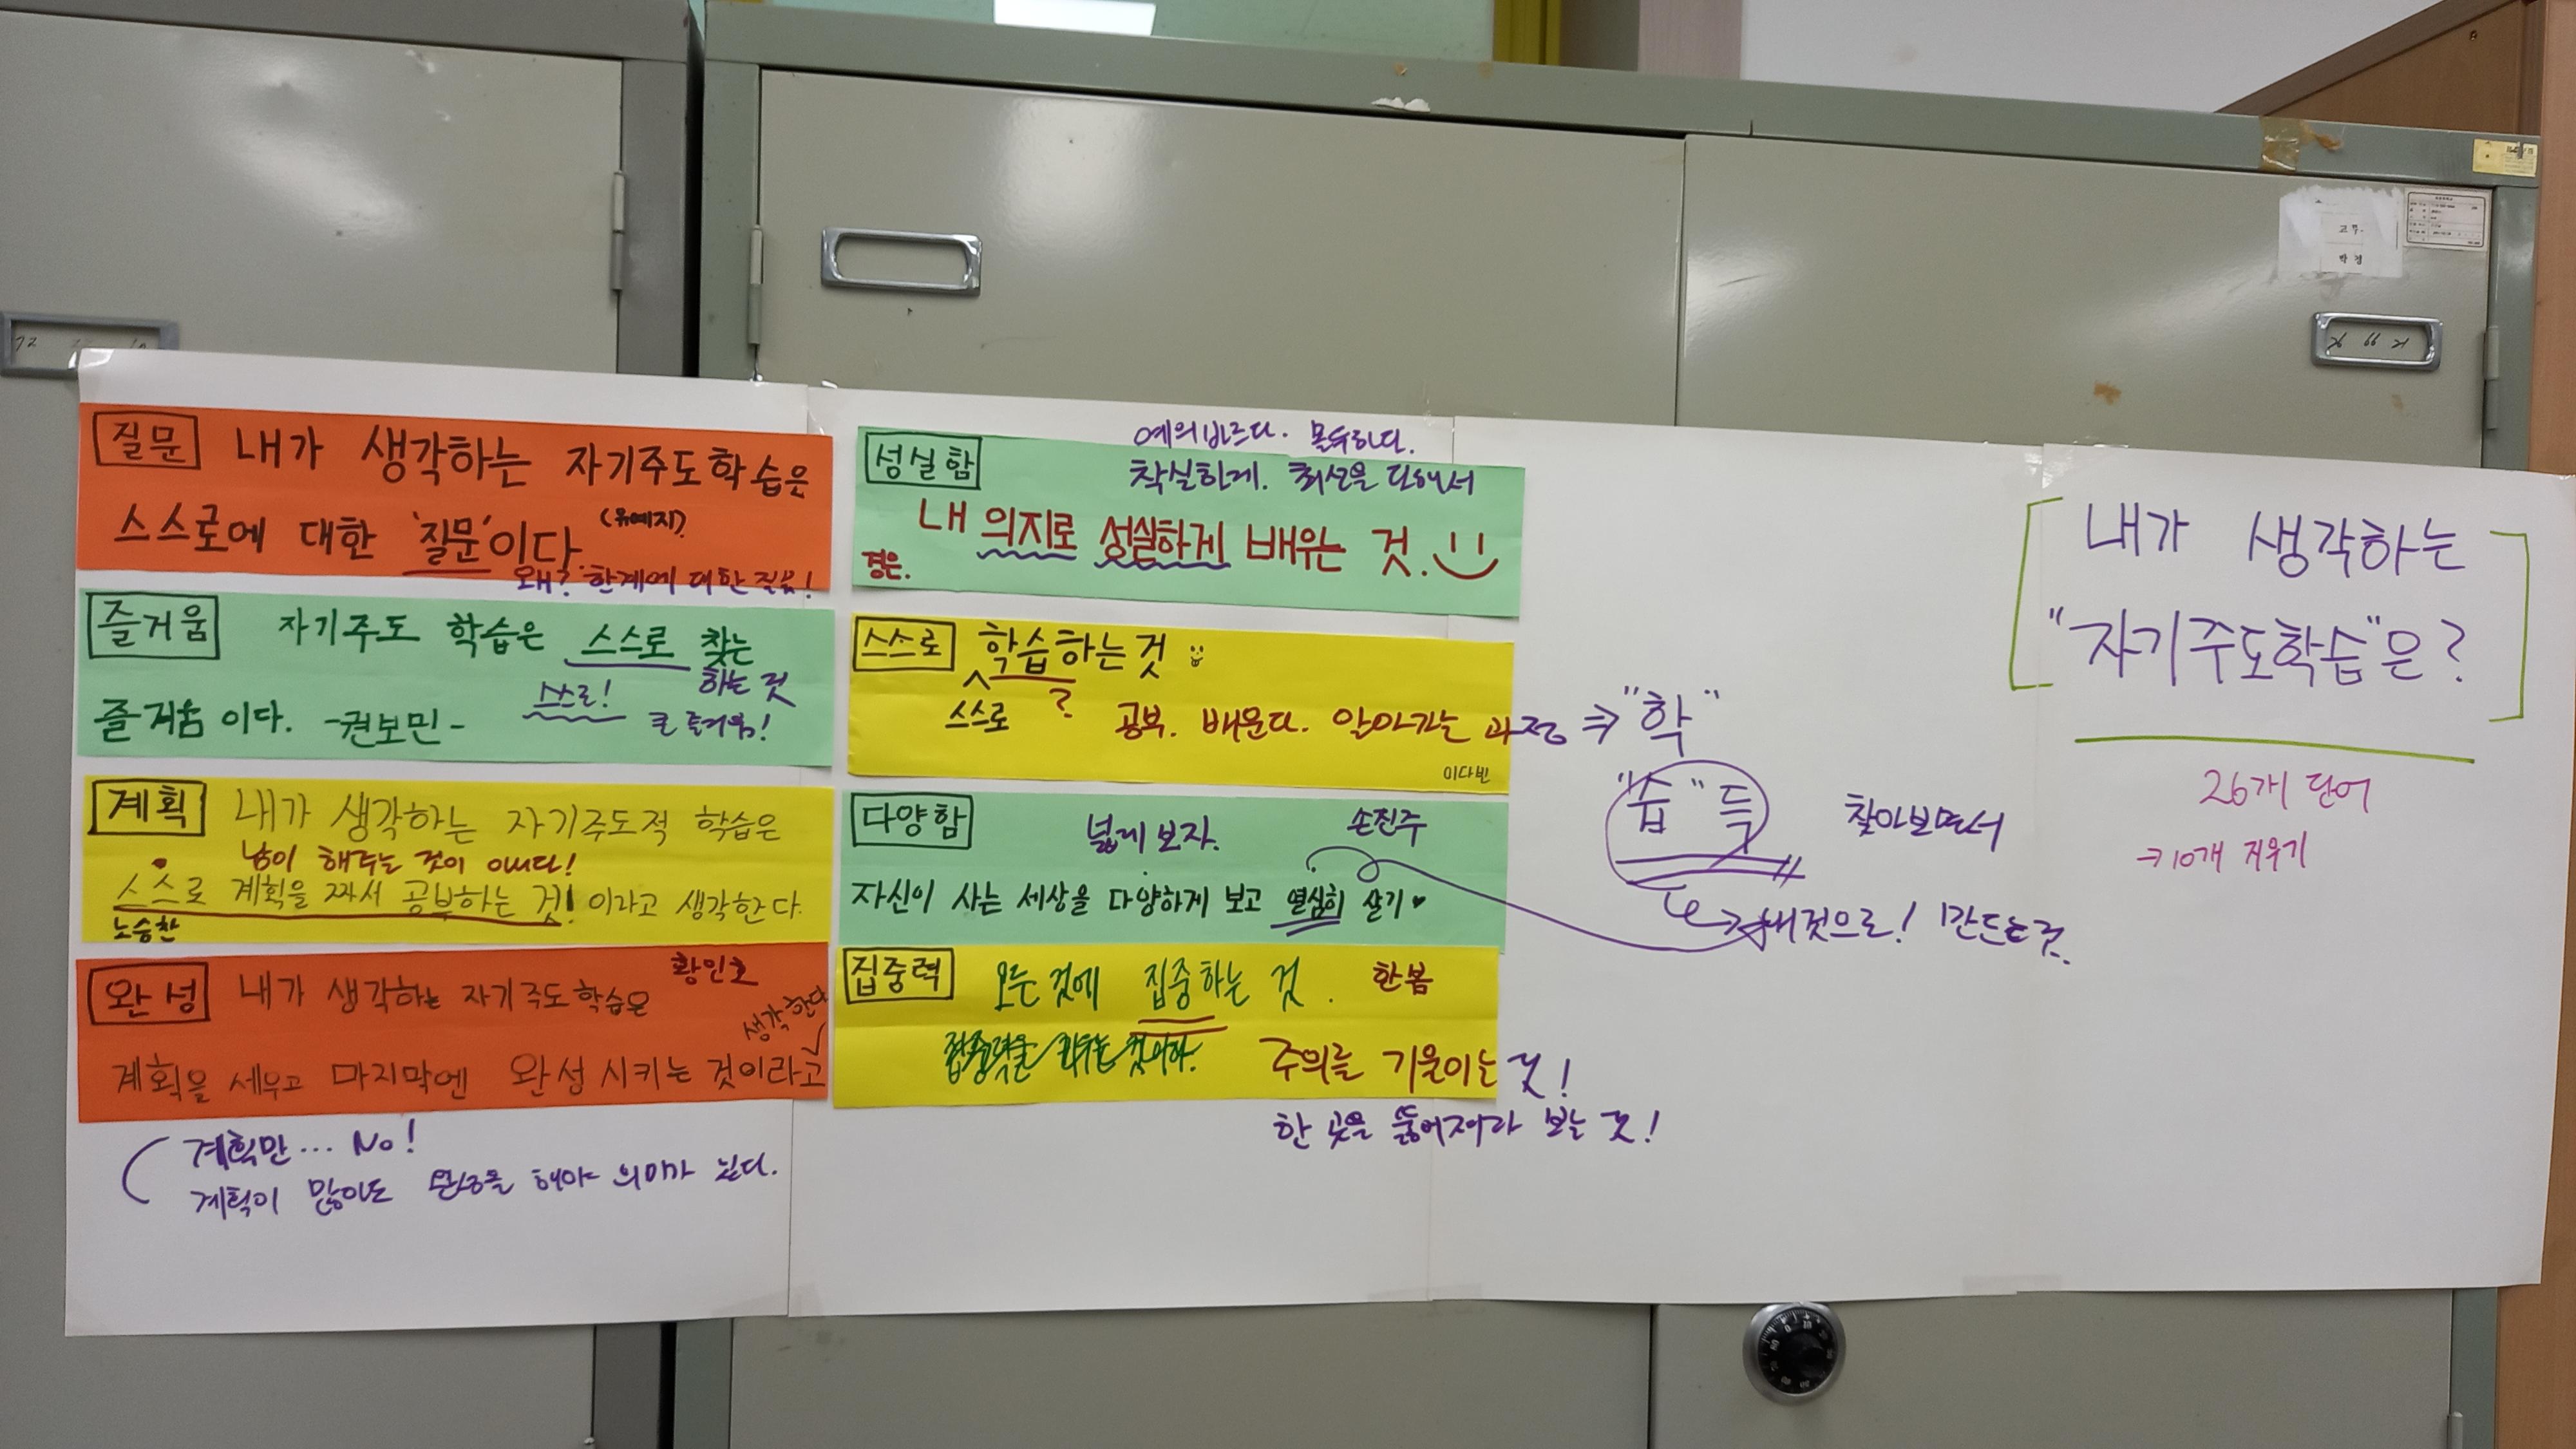 [ 내가 생각하는
"자기주도학습"은? ]
26개 단어
→ 10개 지우기
질문 내가 생각하는 자기주도학습은
스스로에 대한 '질문'이다. (유예지)
왜? 한계에 대한 질문!
즐거움 자기주도 학습은 스스로 찾는
하는 것
즐거움 이다. -권보민-
스스로!
큰 즐거움!
계획 내가 생각하는 자기주도적 학습은
남이 해주는 것이 아니다!
스스로 계획을 짜서 공부하는 것! 이라고 생각한다.
노승찬
완성 내가 생각하는 자기주도학습은 황인호
계획을 세우고 마지막엔 완성 시키는 것이라고 생각한다
계획만... No!
계획이 많아도 완성을 해야 의미가 있다.
성실함
예의바르다.
착실하게. 최선을 다해서
내 의지로 성실하게 배우는 것.
경은.
스스로 학습하는 것
스스로 ?
공부. 배운다. 알아가는 과정 ⇒ "학"
이다빈
"습"득 찾아보면서
내것으로! 만드는 것.
다양함 넓게 보자. 손진주
자신이 사는 세상을 다양하게 보고 열심히 살기♥
집중력 모든 것에 집중하는 것. 한봄
집중력을 키우는 것이다.
주의를 기울이는 것!
한 곳을 뚫어져라 보는 것!